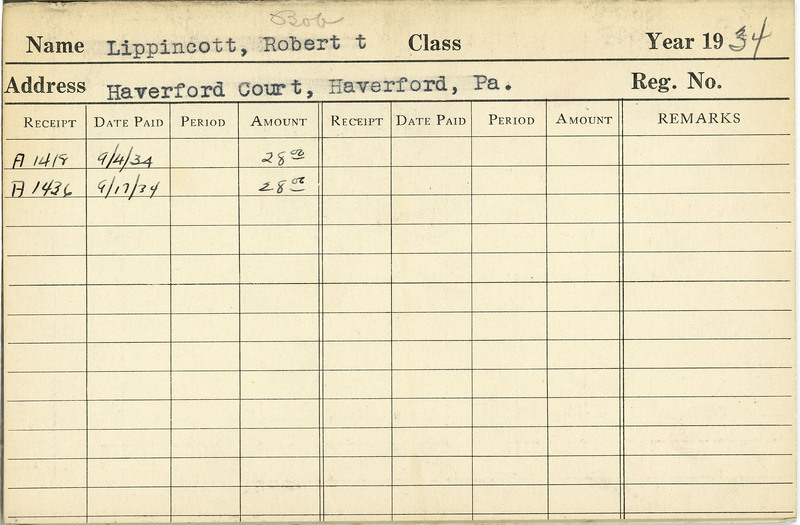 Bob
Name Lippincott, Robert t Class Year 1934
Address Haverford Court, Haverford, Pa. Reg. No.
RECEIPT DATE PAID PERIOD AMOUNT RECEIPT DATE PAID PERIOD AMOUNT REMARKS
A 1419 9/4/34 28.00
A 1436 9/17/34 28.00